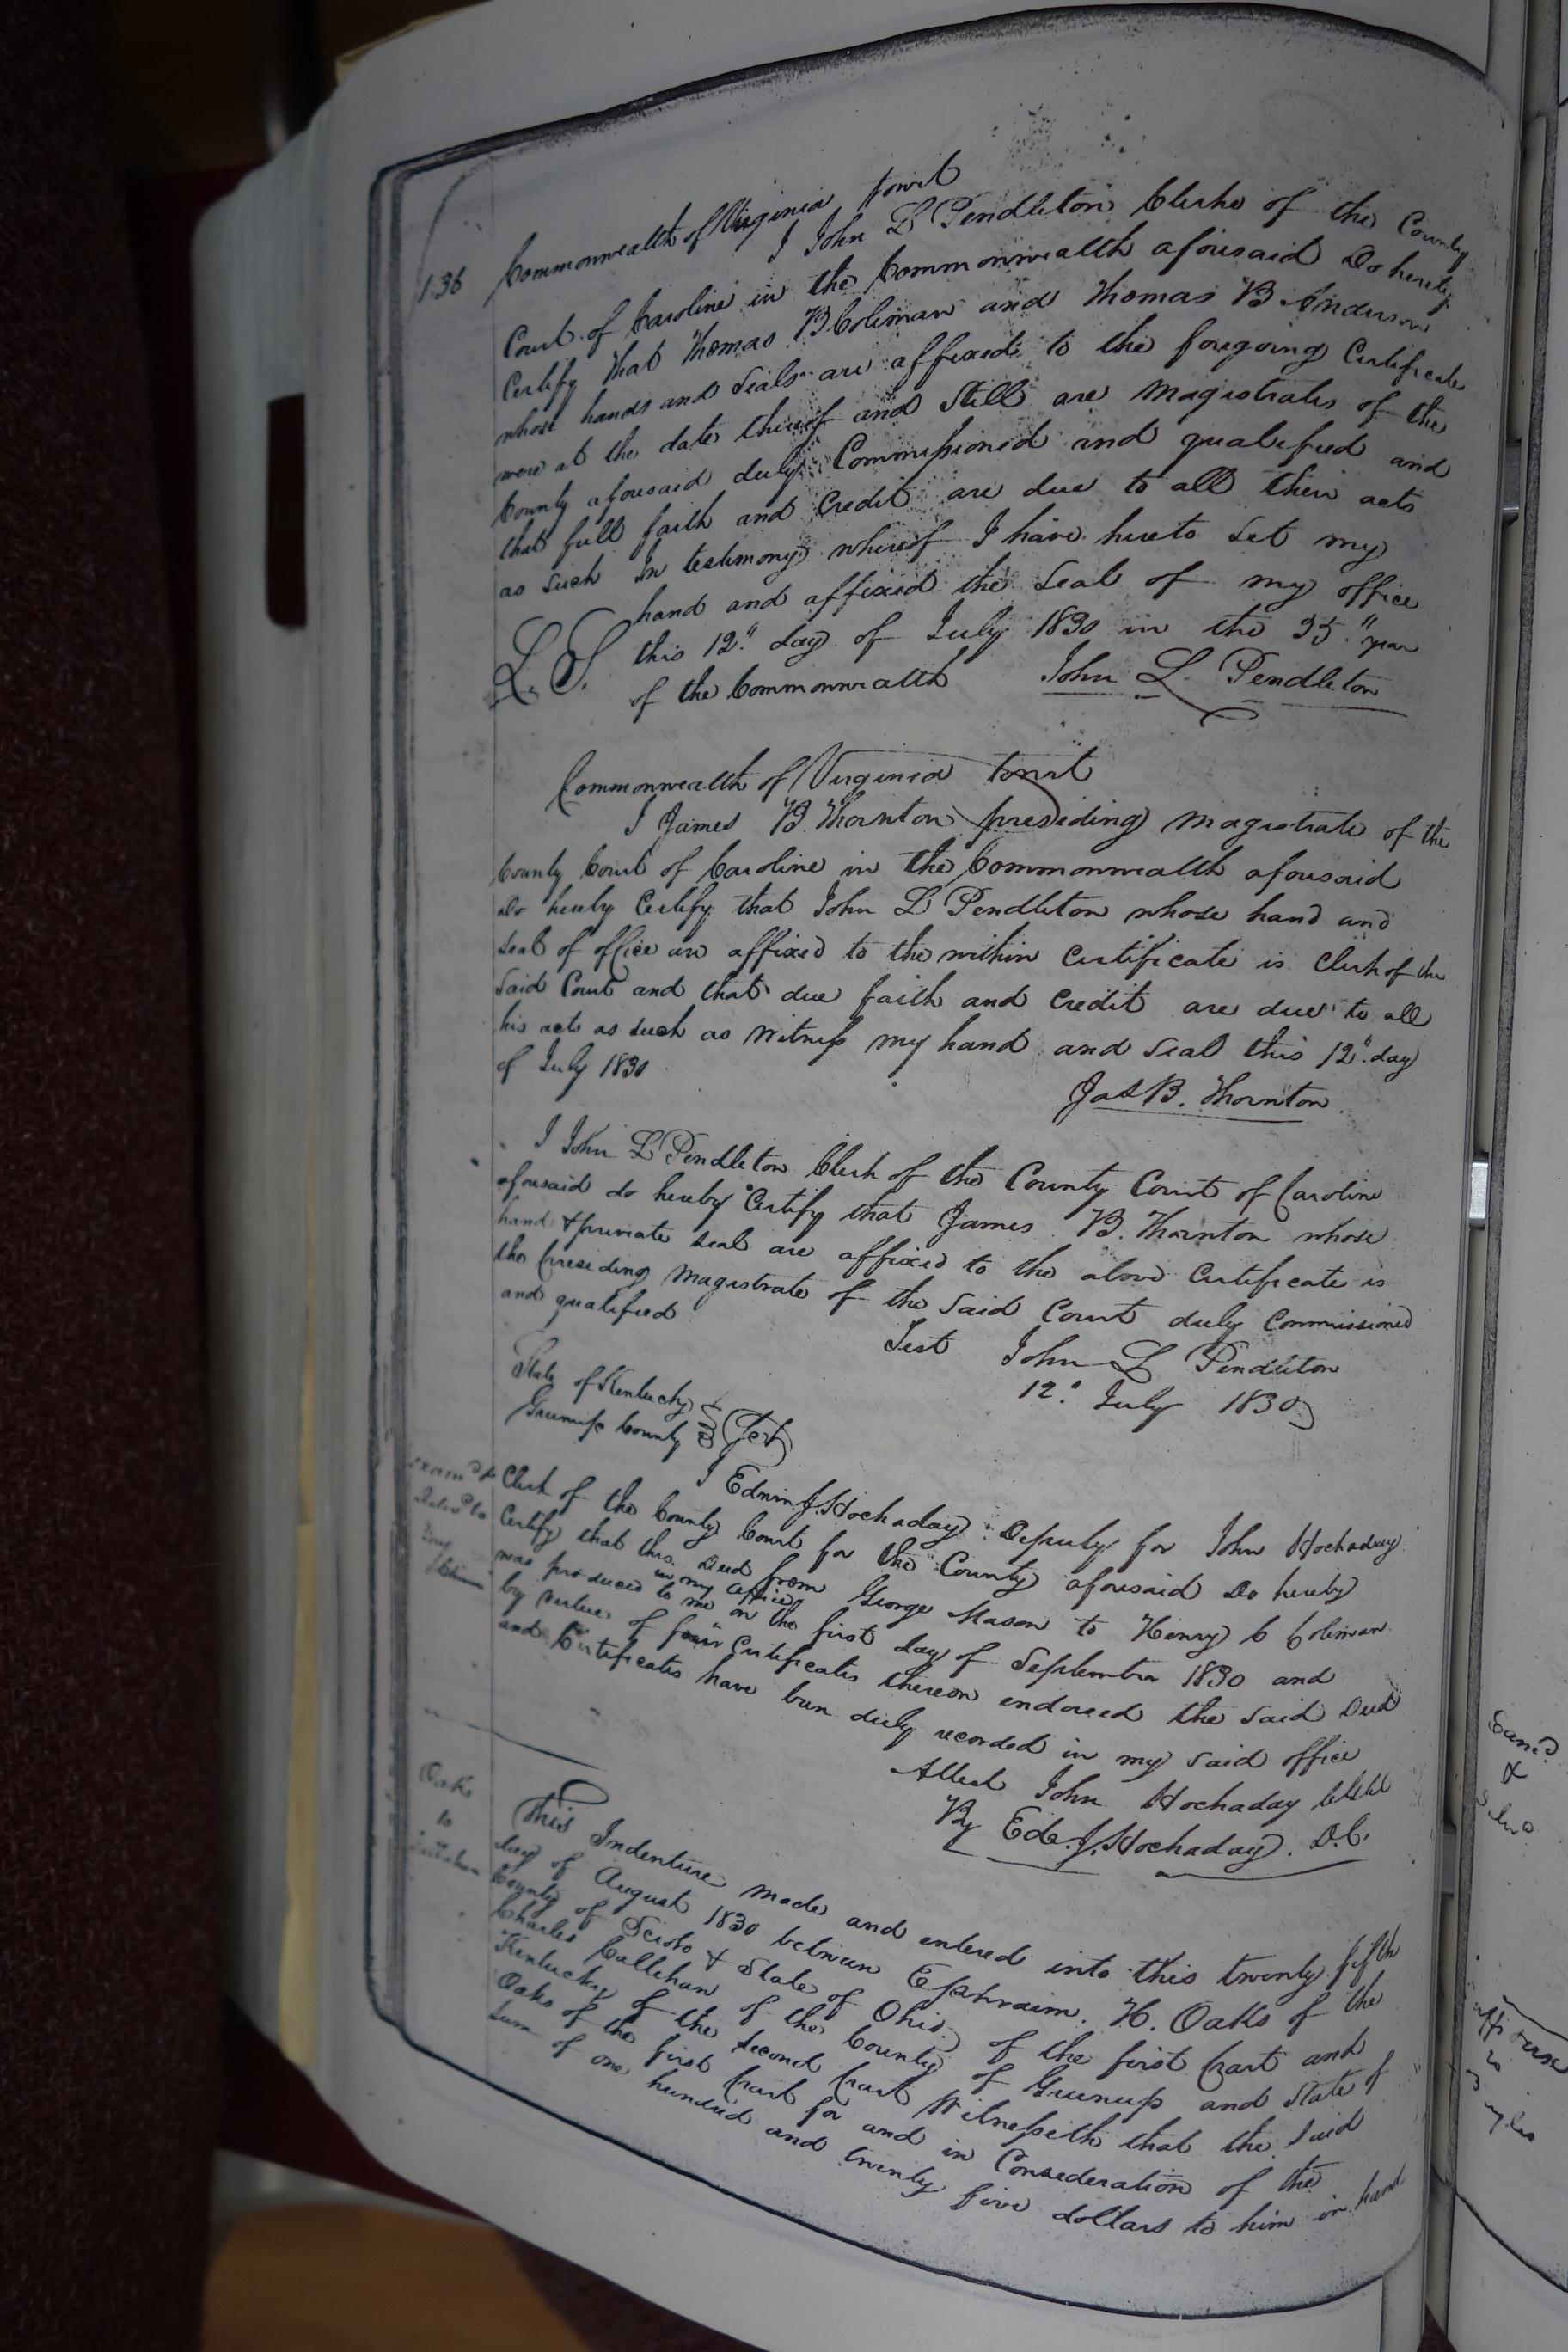 136
Commonwealth of Virginia towit
I John L Pendleton Clerke of the County
Court of Caroline in the Commonwealth aforesaid Do hereby
Certify that Thomas B Coleman and Thomas B Anderson
whose hands and Seals are affixed to the foregoing Certificate
were at the date thereof and Still are Magistrates of the
County aforesaid duly Commissioned and qualified and
that full faith and Credit are due to all their acts
as such In testimony whereof I have hereto Set my
hand and affixed the Seal of my office
L. S. this 12" day of July 1830 in the 35" year
of the Commonwealth John L. Pendleton
Commonwealth of Virginia towit
I James B Thornton presiding Magistrate of the
County Court of Caroline in the Commonwealth aforesaid
Do hereby Certify that John L Pendleton whose hand and
Seal of office are affixed to the within Certificate is Clerk of the
Said Court and that due faith and Credit are due to all
his acts as such as Witness my hand and Seal this 12" day
of July 1830
Jas B. Thornton
I John L Pendleton Clerk of the County Court of Caroline
aforesaid do hereby Certify that James B. Thornton whose
hand & private Seal are affixed to the above Certificate is
the presiding Magistrate of the Said Court duly Commissioned
and qualified
Test John L Pendleton
12" July 1830
State of Kentucky
Greenup County } Sct
I Edwin J. Hockaday Deputy for John Hockaday
Clerk of the County Court for the County aforesaid Do hereby
Certify that this Deed from George Mason to Henry C Coleman
was produced to me in my office on the first day of September 1830 and
by virtue of four Certificates thereon endorsed the Said Deed
and Certificates have been duly recorded in my Said office
Attest John Hockaday Clk
By Edw. J. Hockaday. D.C.
Exam'd &
Deliv'd to
Oaks
to
Callehan
This Indenture made and entered into this twenty fifth
day of August 1830 between Ephraim. H. Oaks of the
County of Scioto & State of Ohio of the first part and
Charles Callehan of the County of Greenup and State of
Kentucky of the Second part Witnesseth that the Said
Oaks of the first part for and in Consederation of the
Sum of one hundred and twenty five dollars to him in hand